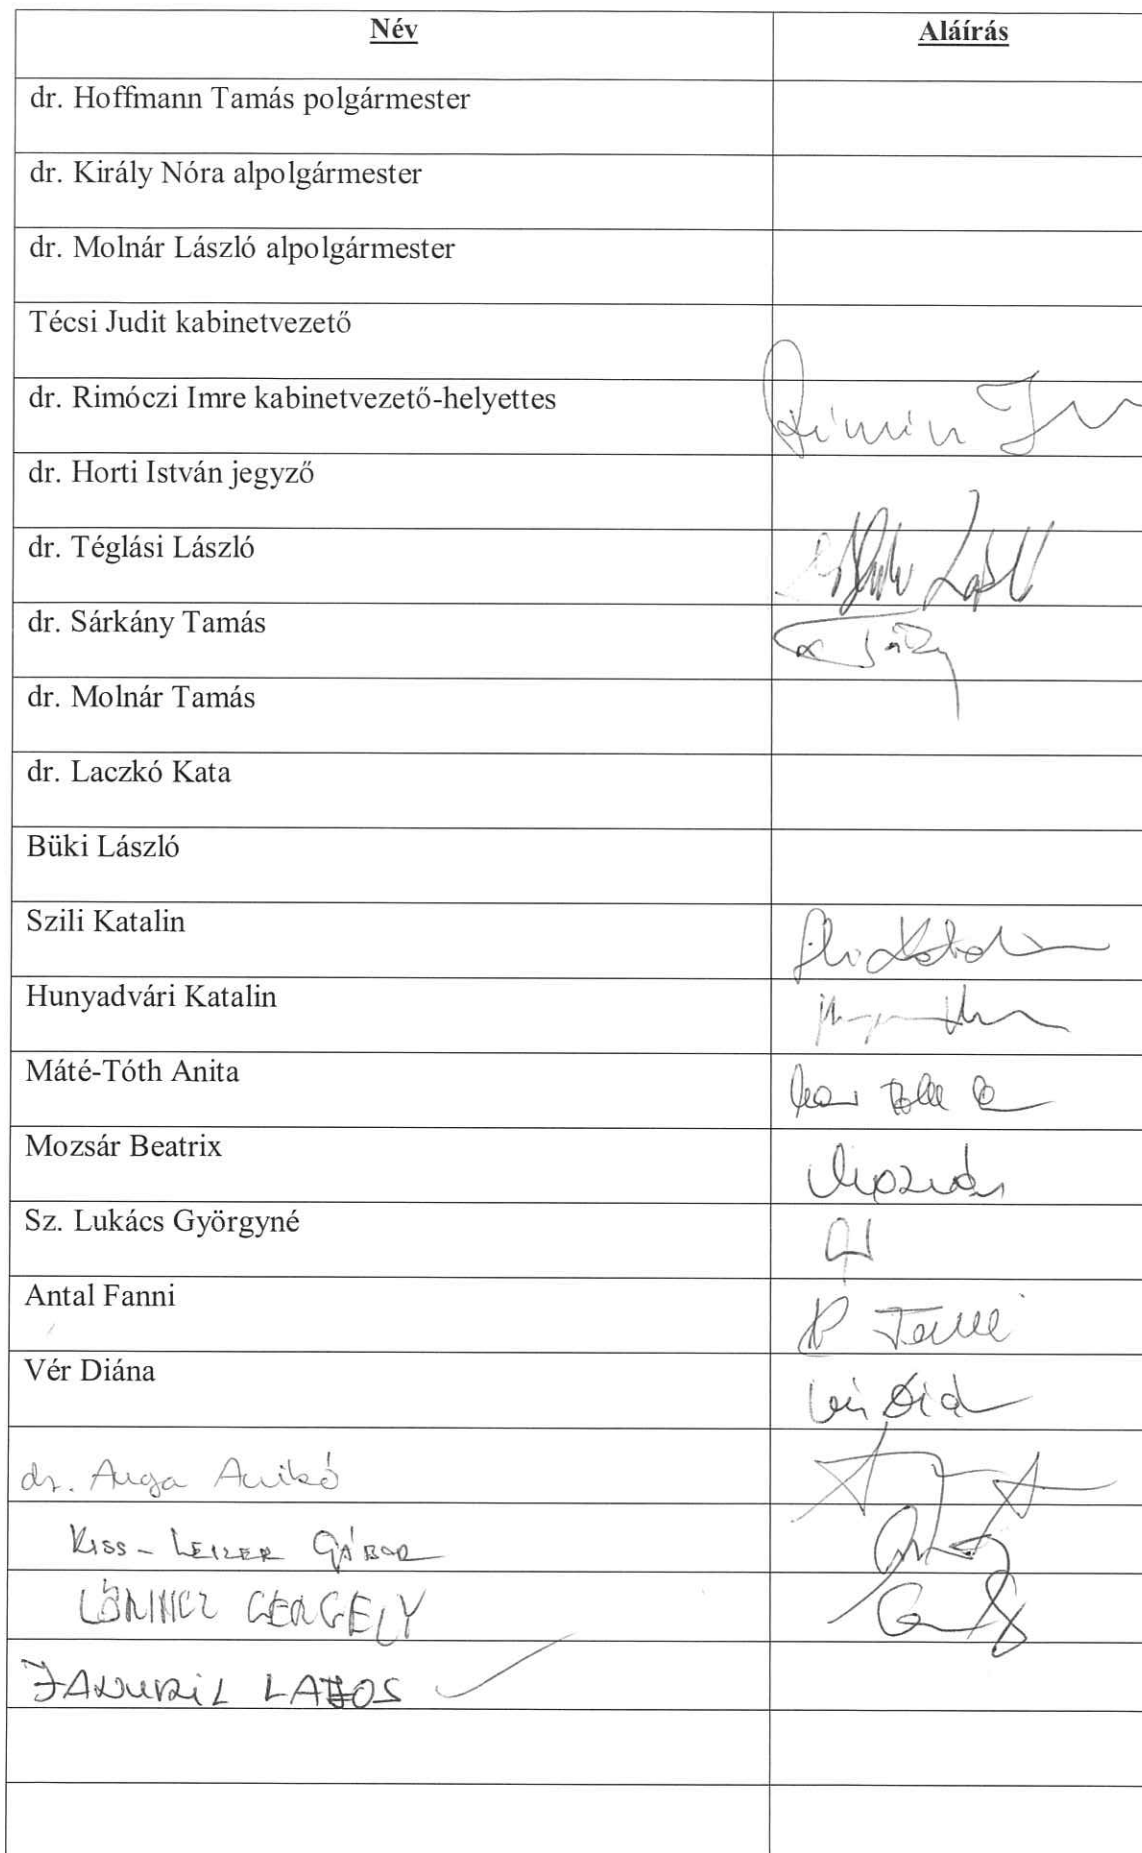 Név Aláírás
dr. Hoffmann Tamás polgármester
dr. Király Nóra alpolgármester
dr. Molnár László alpolgármester
Técsi Judit kabinetvezető
dr. Rimóczi Imre kabinetvezető-helyettes
dr. Horti István jegyző
dr. Téglási László
dr. Sárkány Tamás
dr. Molnár Tamás
dr. Laczkó Kata
Büki László
Szili Katalin
Hunyadvári Katalin
Máté-Tóth Anita
Mozsár Beatrix Mozsár
Sz. Lukács Györgyné
Antal Fanni
Vér Diána
dr. Auga Anikó
KISS-LEIZER GÁBOR
LŐRINCZ GERGELY
LAJOS